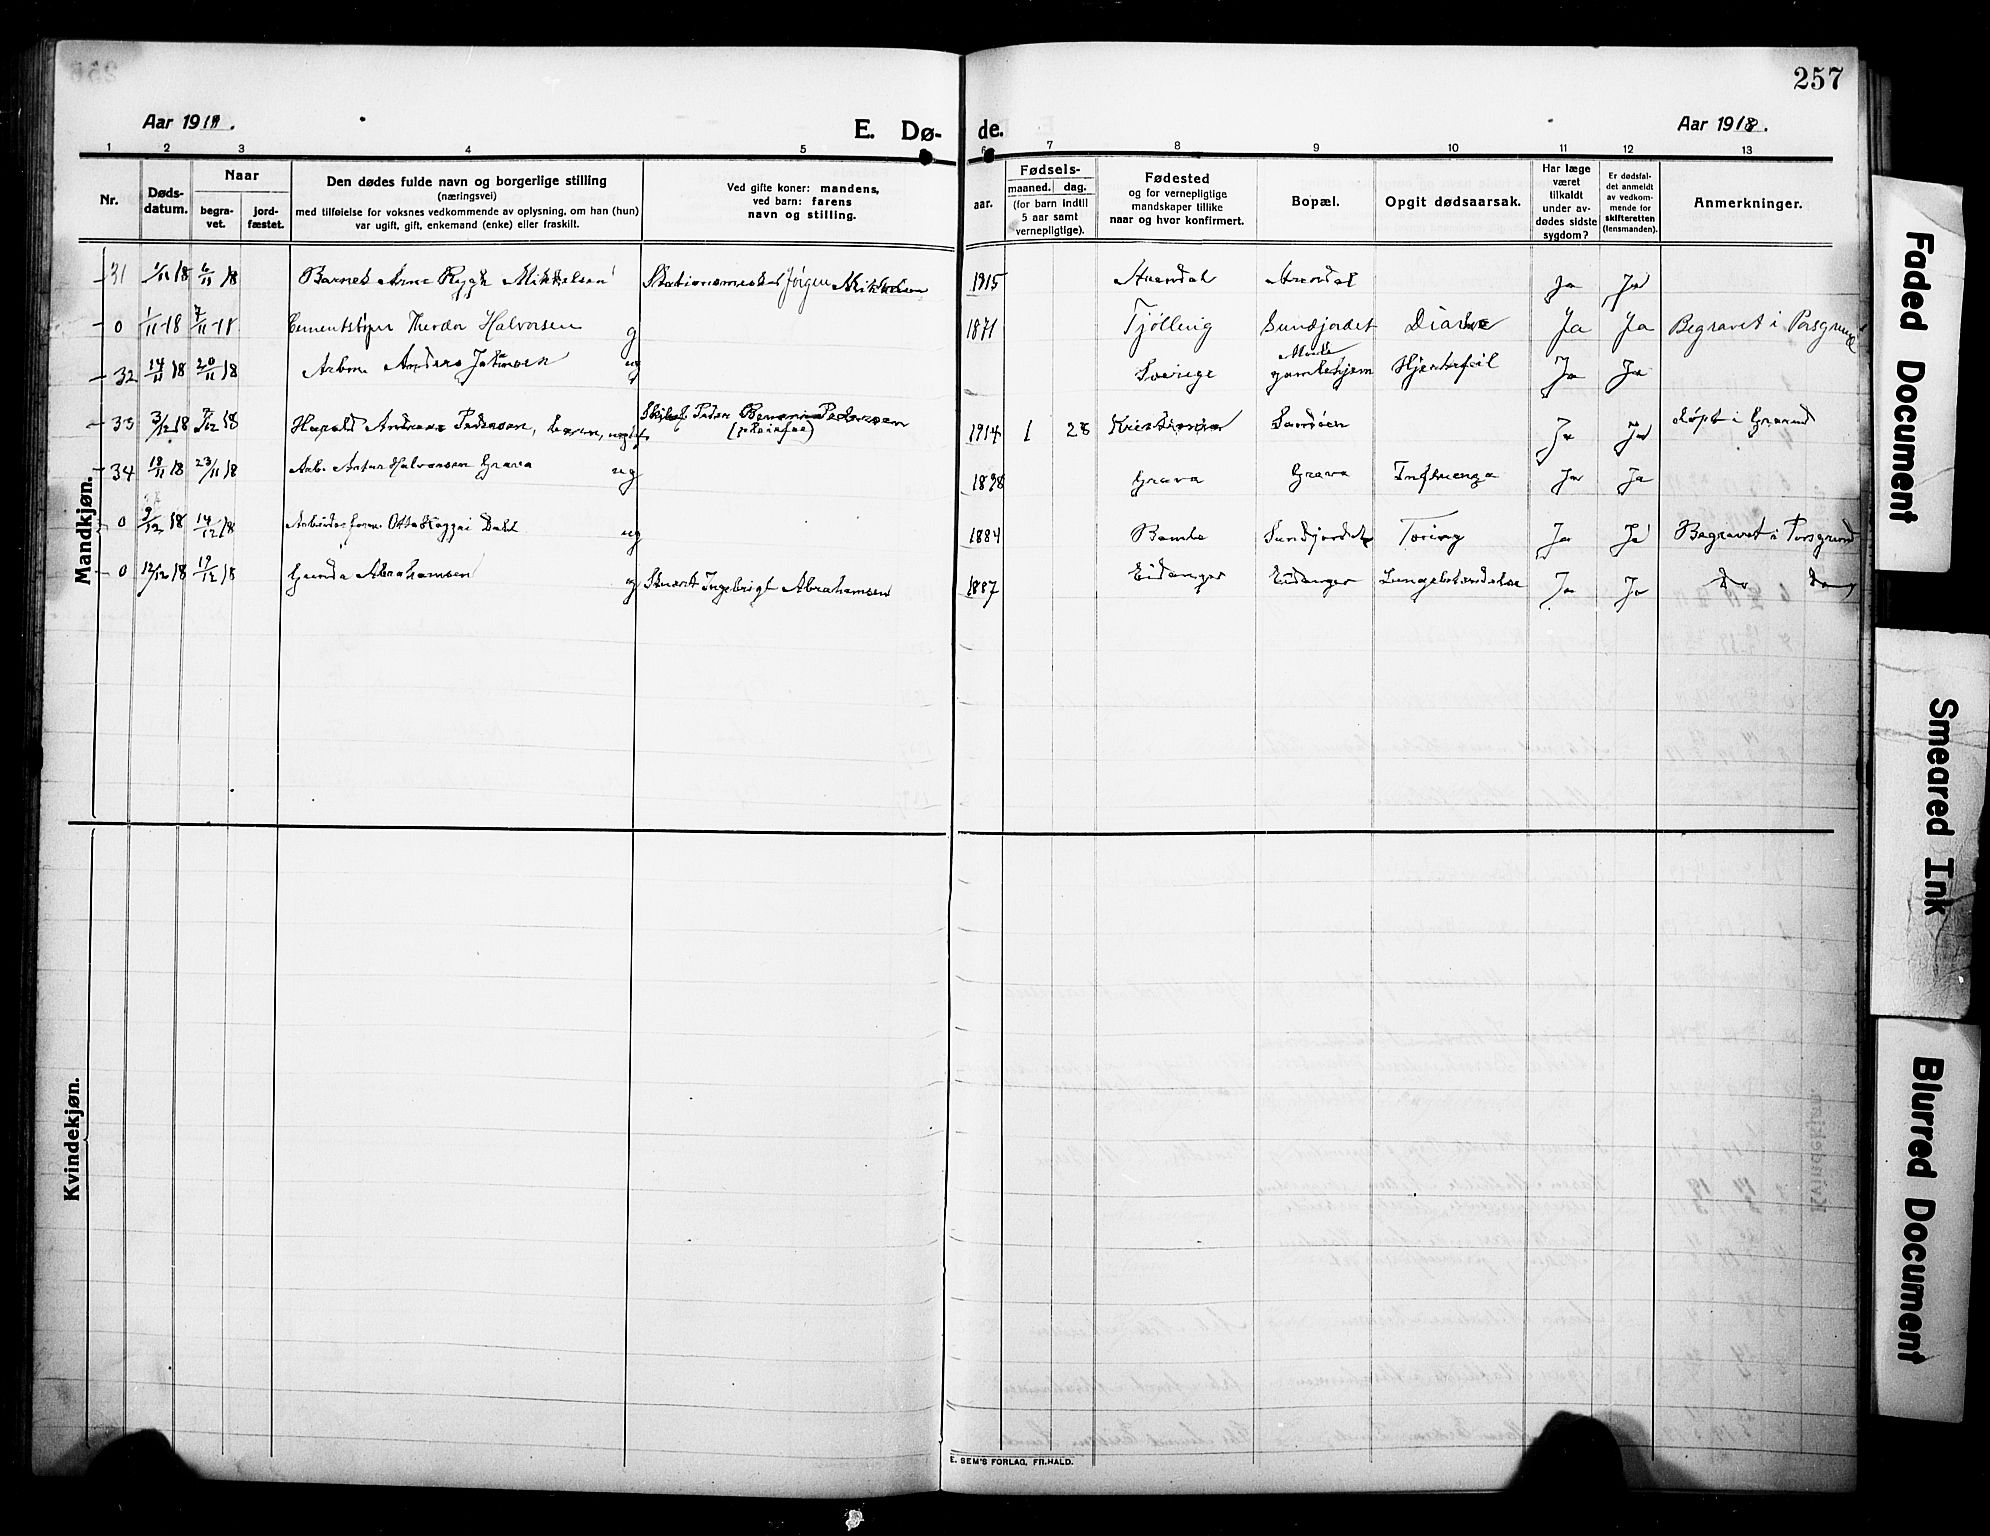 257
Aar 1911.
E. Dø-
de.
Aar 1918.
1 2 3 4 5 6 7 8 9 10 11 12 13
Nr.
Døds-
datum.
Naar
begra-
vet.
jord-
fæstet.
Den dødes fulde navn og borgerlige stilling
(næringsvei)
med tilføielse for voksnes vedkommende av oplysning, om han (hun)
var ugift, gift, enkemand (enke) eller fraskilt.
Ved gifte koner: mandens,
ved barn: farens
navn og stilling.
aar.
Fødsels-
maaned. dag.
(for barn indtil
5 aar samt
vernepligtige).
Fødested
og for vernepligtige
mandskaper tillike
naar og hvor konfirmert.
Bopæl.
Opgit dødsaarsak.
Har læge
været
tilkaldt
under av-
dødes sidste
sygdom?
Er dødsfal-
det anmeldt
av vedkom-
mende for
skifteretten
(lensmanden).
Anmerkninger.
Mandkjøn.
31 1/11 18 6/11 18 Barnet Arne Rygh Mikkelsen Stationsmester Jørgen Mikkelsen 1915 Arendal Arendal Ja Ja
0 1/11 - 18 7/11 - 18 Cementstøper Theodor Halvorsen g 1871 Tjølling Sundjordet Ja Ja Begravet i Porsgrund
32 14/11 18 20/11 18 Arbm. Anders Johnsen ug Sverige gamlehjem Hjertefeil Ja Ja
33 3/12 18 7/12 18 Harald Andreas Pedersen, barn, Peder Pedersen 1914 1 28 Sandøen Ja Ja døpt i
34 18/11 18 23/11 18 Arb. Artur Halvorsen Grava ug 1898 Grava Grava Influenza Ja Ja
0 9/12 18 14/12 18 Arbeidsform. Otto Dahl ug 1884 Bamle Sundjordet Tæring Ja Ja Begravet i Porsgrund
0 12/12 18 17/12 18 Gunda Abrahamsen g Stuert Ingebrigt Abrahamsen 1887 Eidanger Eidanger Lungebetændelse Ja Ja Do Do
Kvindekjøn.
E. SEM'S FORLAG, FR.HALD.
Faded Document
Smeared Ink
Blurred Document